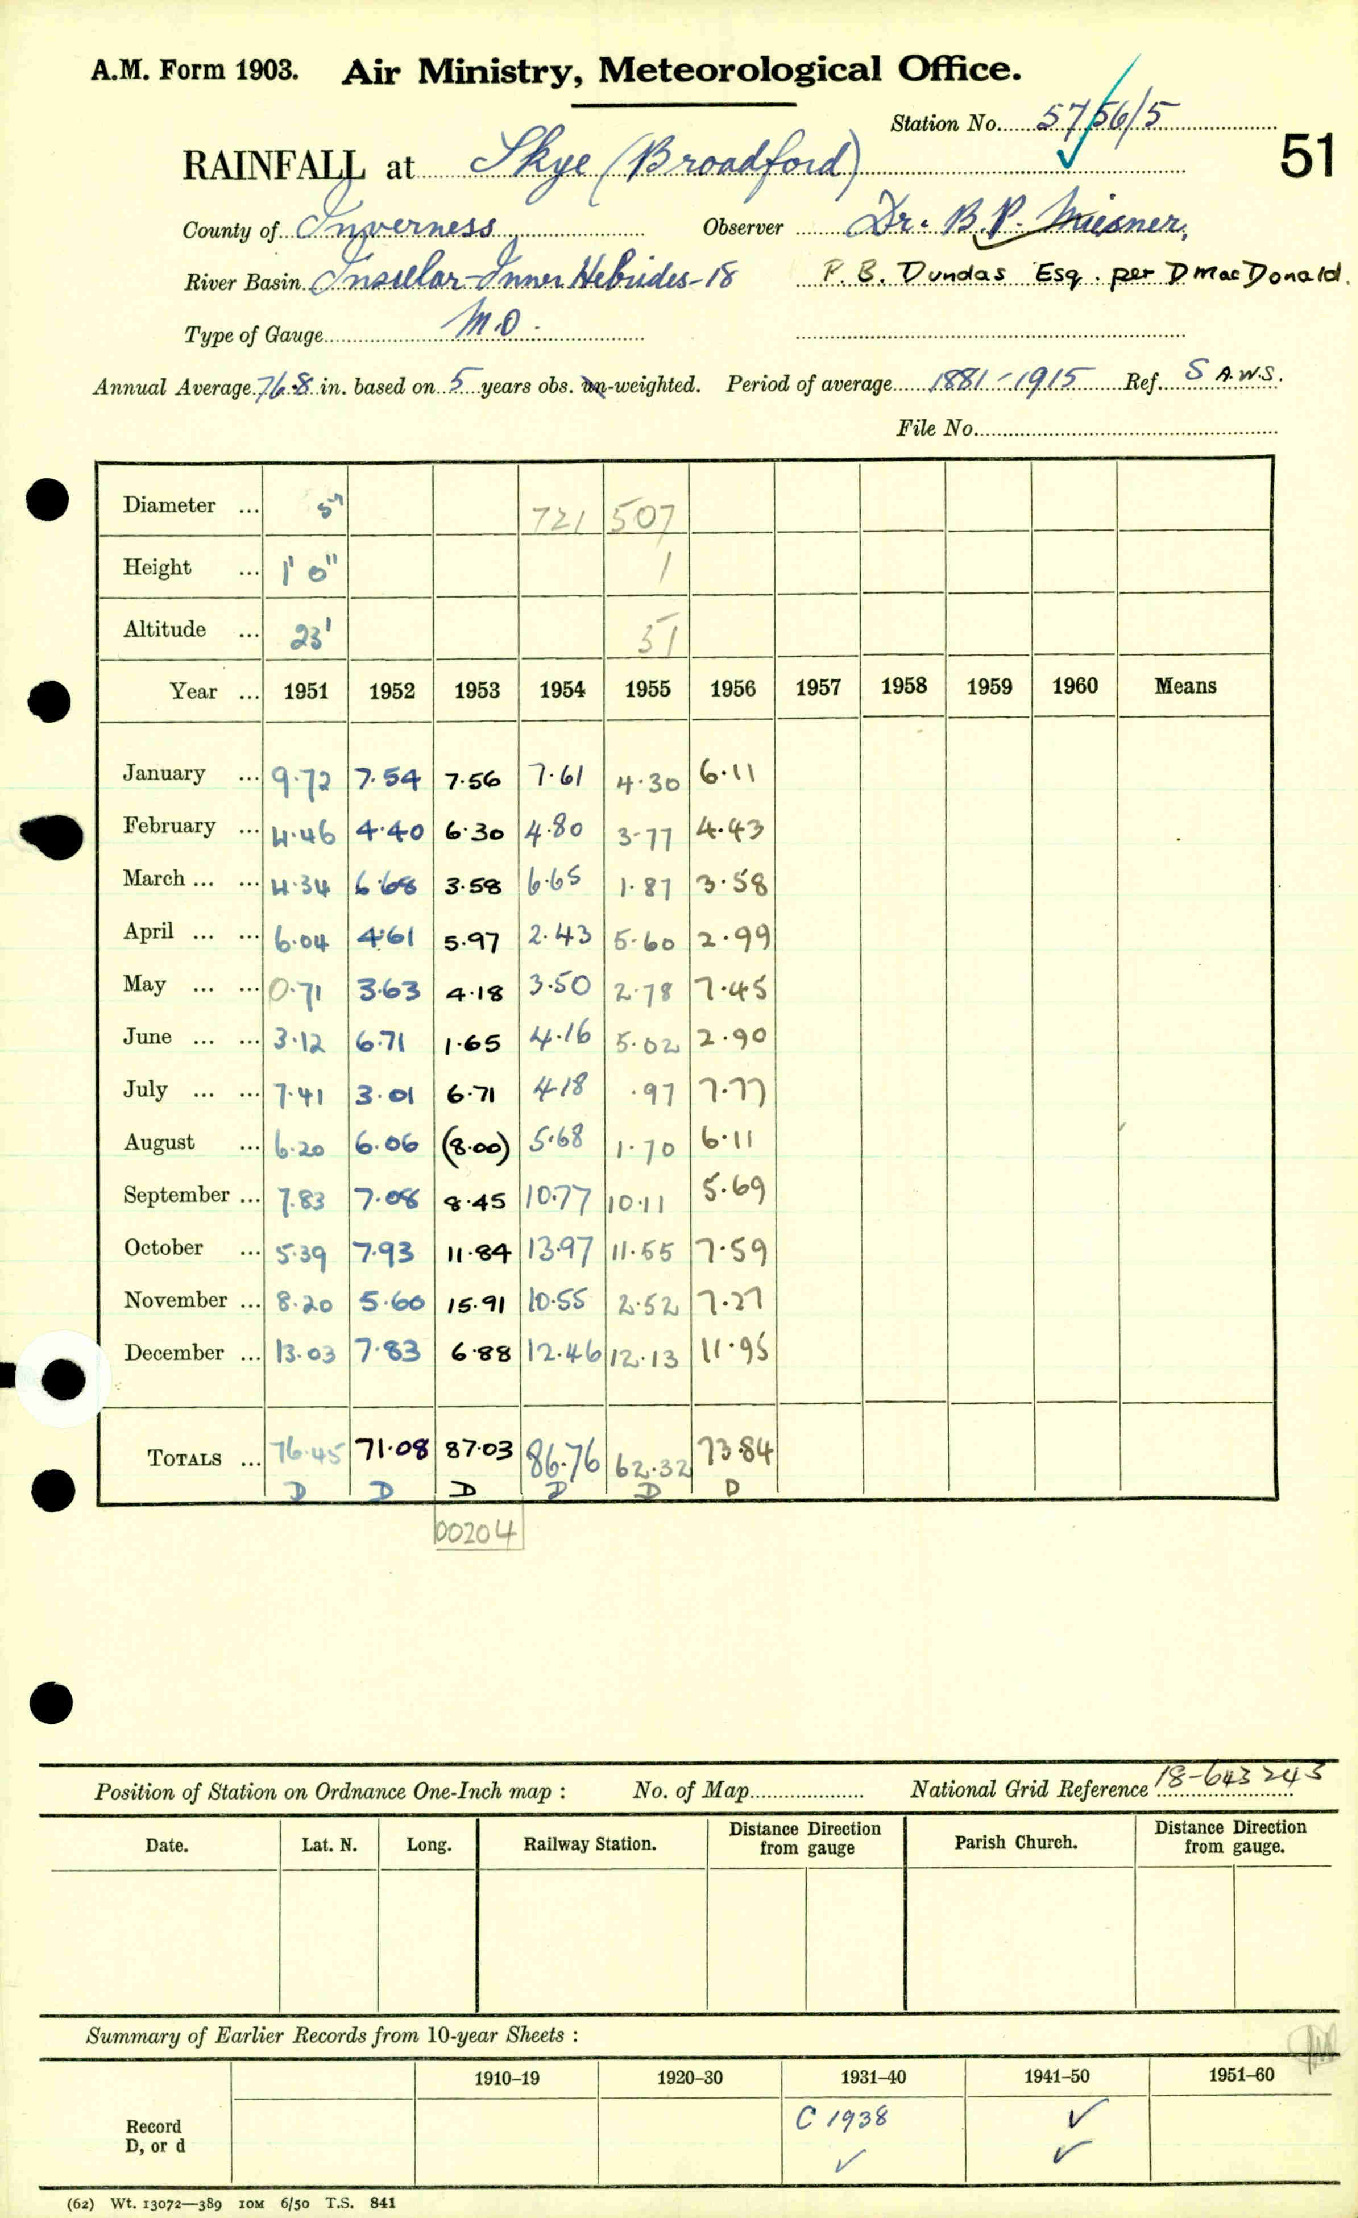 A.M. Form 1903. Air Ministry, Meteorological Office.
Station No. 57/56/5
51
RAINFALL at Skye (Broadford)
County of Inverness Observer Dr. B. P. Miesner,
River Basin Insular-Inner Hebrides-18 P. B. Dundas Esq. per D MacDonald.
Type of Gauge M.O.
Annual Average 76.8 in. based on 5 years obs. un-weighted. Period of average 1881-1915 Ref. S A.W.S.
File No.
Diameter ... 5" 721 507
Height ... 1' 0" 1
Altitude ... 23' 51
Year ... 1951 1952 1953 1954 1955 1956 1957 1958 1959 1960 Means
January ... 9.72 7.54 7.56 7.61 4.30 6.11
February ... 4.46 4.40 6.30 4.80 3.77 4.43
March ... ... 4.34 6.68 3.58 6.65 1.87 3.58
April ... ... 6.04 4.61 5.97 2.43 5.60 2.99
May ... ... 0.71 3.63 4.18 3.50 2.78 7.45
June ... ... 3.12 6.71 1.65 4.16 5.02 2.90
July ... ... 7.41 3.01 6.71 4.18 .97 7.77
August ... 6.20 6.06 (8.00) 5.68 1.70 6.11
September ... 7.83 7.08 8.45 10.77 10.11 5.69
October ... 5.39 7.93 11.84 13.97 11.55 7.59
November ... 8.20 5.60 15.91 10.55 2.52 7.27
December ... 13.03 7.83 6.88 12.46 12.13 11.95
TOTALS ... 76.45 71.08 87.03 86.76 62.32 73.84
D D D D D D
00204
Position of Station on Ordnance One-Inch map : No. of Map National Grid Reference 18-643243
Date. Lat. N. Long. Railway Station. Distance from Direction gauge Parish Church. Distance from Direction gauge.
Summary of Earlier Records from 10-year Sheets :
1910-19 1920-30 1931-40 1941-50 1951-60
Record C 1938 ✓
D, or d ✓ ✓
(62) Wt. 13072—389 10M 6/50 T.S. 841